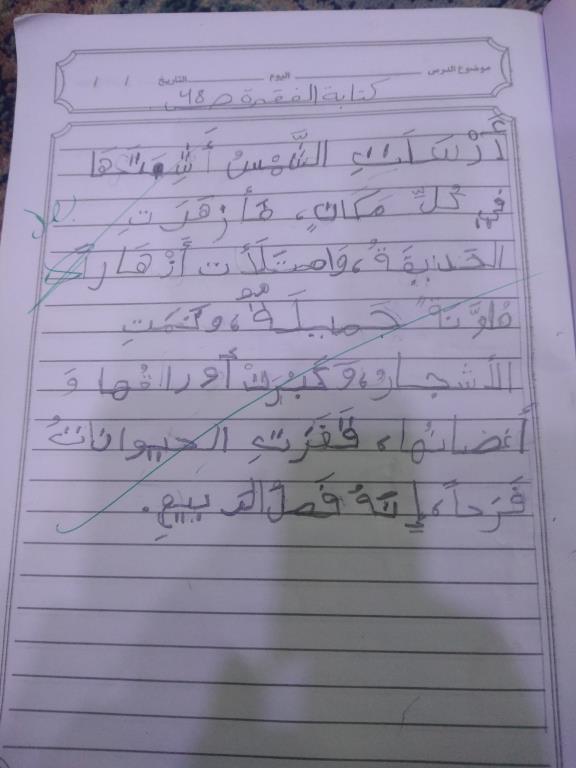 موضوع الدرس اليوم التاريخ / /
كتابة الفقرة ص ٦٨
أَرْسَلَتِ الشَّمْسُ أَشِعَّتَهَا
فِي كُلِّ مَكَانٍ، فَأَزْهَرَتِ
الحَدِيقَةُ، وَامتَلَأَت أَزْهَاراً
مُلَوَّنَةً جَمِيلَةً، وَنَمَتِ
الأَشْجَارُ، وَكَبُرَتْ أَوراقُها وَ
أَغصَانُها، قَفَزَتِ الحيواناتُ
فَرَحاً، إِنَّهُ فَصلُ الرَبيعِ.